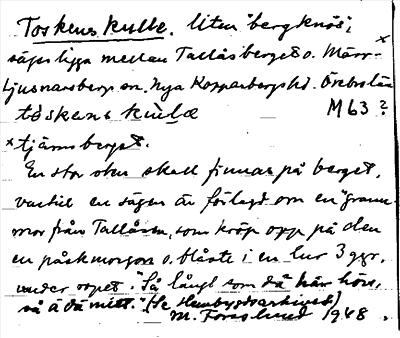 Toskens kulle. Liten "bergknös",
säges ligga mellan Tallåsberget o. Märr- x
Ljusnarsbergs sn. Nya Kopparbergs hd. Örebro län
töskens kulæ M63 ?
x tjärnsberget.
En stor sten skall finnas på berget,
vartill en sägen är förlagd om en "gran
mor från Tallåsen, som kröp opp på den
en påskmorgon o. blåste i en lur 3 ggr,
under ropet: "Så långt som dä här hörs,
så ä dä mitt." (Se Hembygdsarkivet)
M. Forslund 1948.